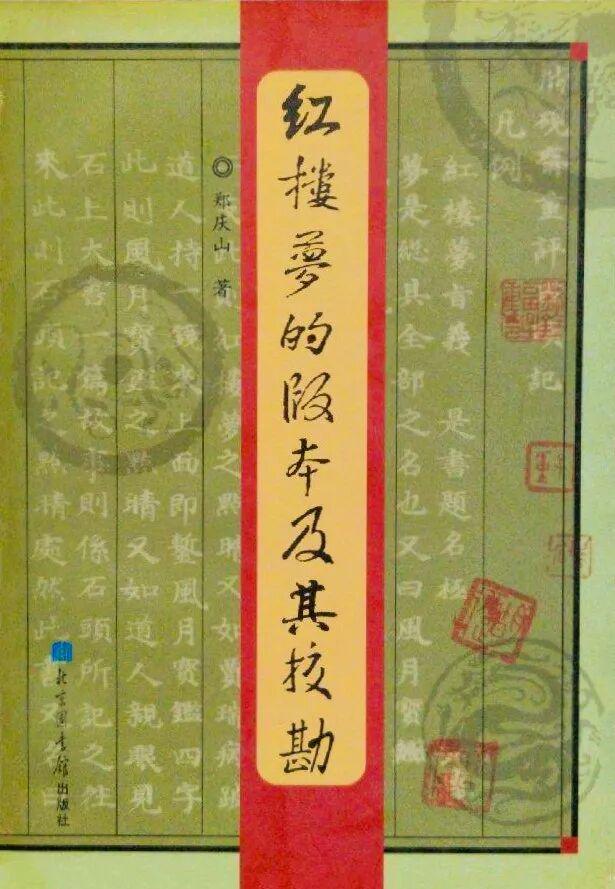 红楼夢的版本及其校勘
郑庆山 著
北京图书馆出版社
脂硯齋重評 記
凡例
紅樓夢旨義 是書題名極
夢是總其全部之名也又曰風月寶鑑
紅樓夢之點睛又如賈瑞病
道人持一鏡來上面即鏨風月寶鑑四字
此則風月寶鑑之點睛又如道人親眼見
石上大書一篇故事則係石頭所記之往
來此則石頭記之點睛處然此書又